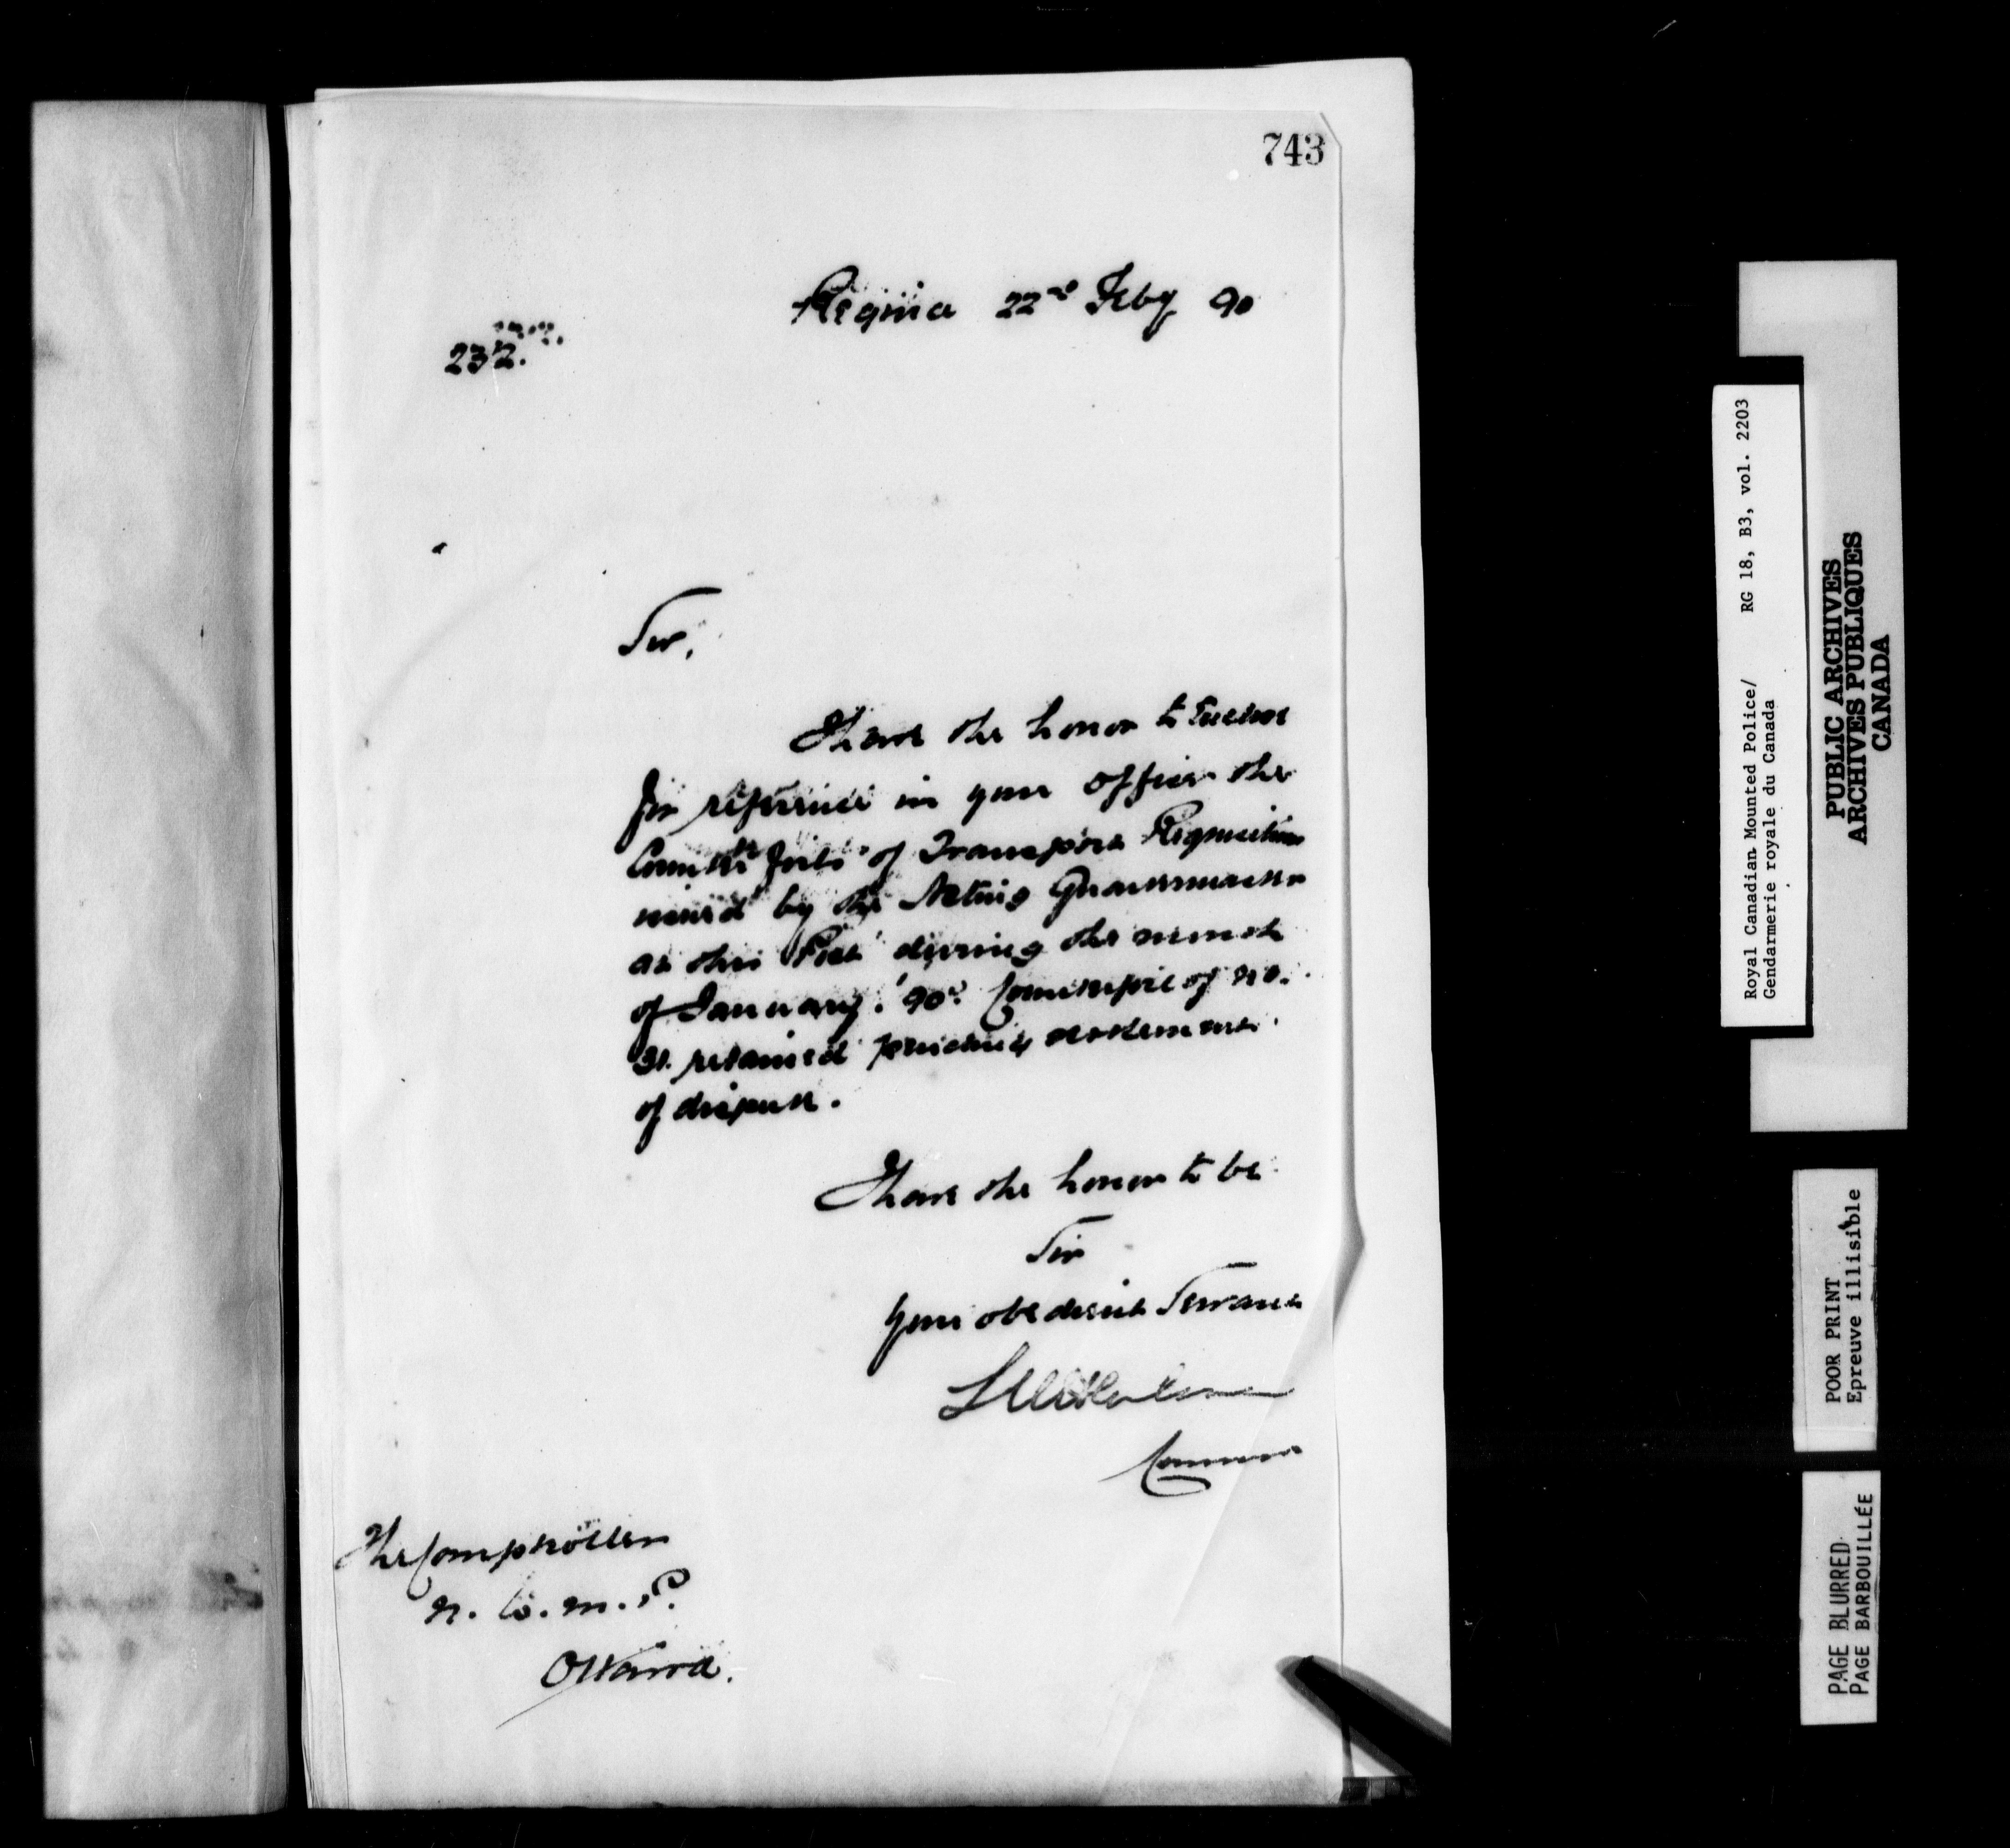 743
Regina 22nd Feby 90
232.
Sir,
I have the honor to Enclose
for reference in your office the
Counterfoils of Transport Requisitions
issued by the Acting Quartermaster
at this Post during the month
of January '90. Counterfoil of No.
31. retained pending settlement
of dispute.
I have the honor to be
Sir
Your obedient Servant
Commr
The Comptroller
N. W. M. P.
Ottawa.
Royal Canadian Mounted Police/ RG 18, B3, vol. 2203
Gendarmerie royale du Canada
PUBLIC ARCHIVES
ARCHIVES PUBLIQUES
CANADA
POOR PRINT
Epreuve illisible
PAGE BLURRED
PAGE BARBOUILLÉE